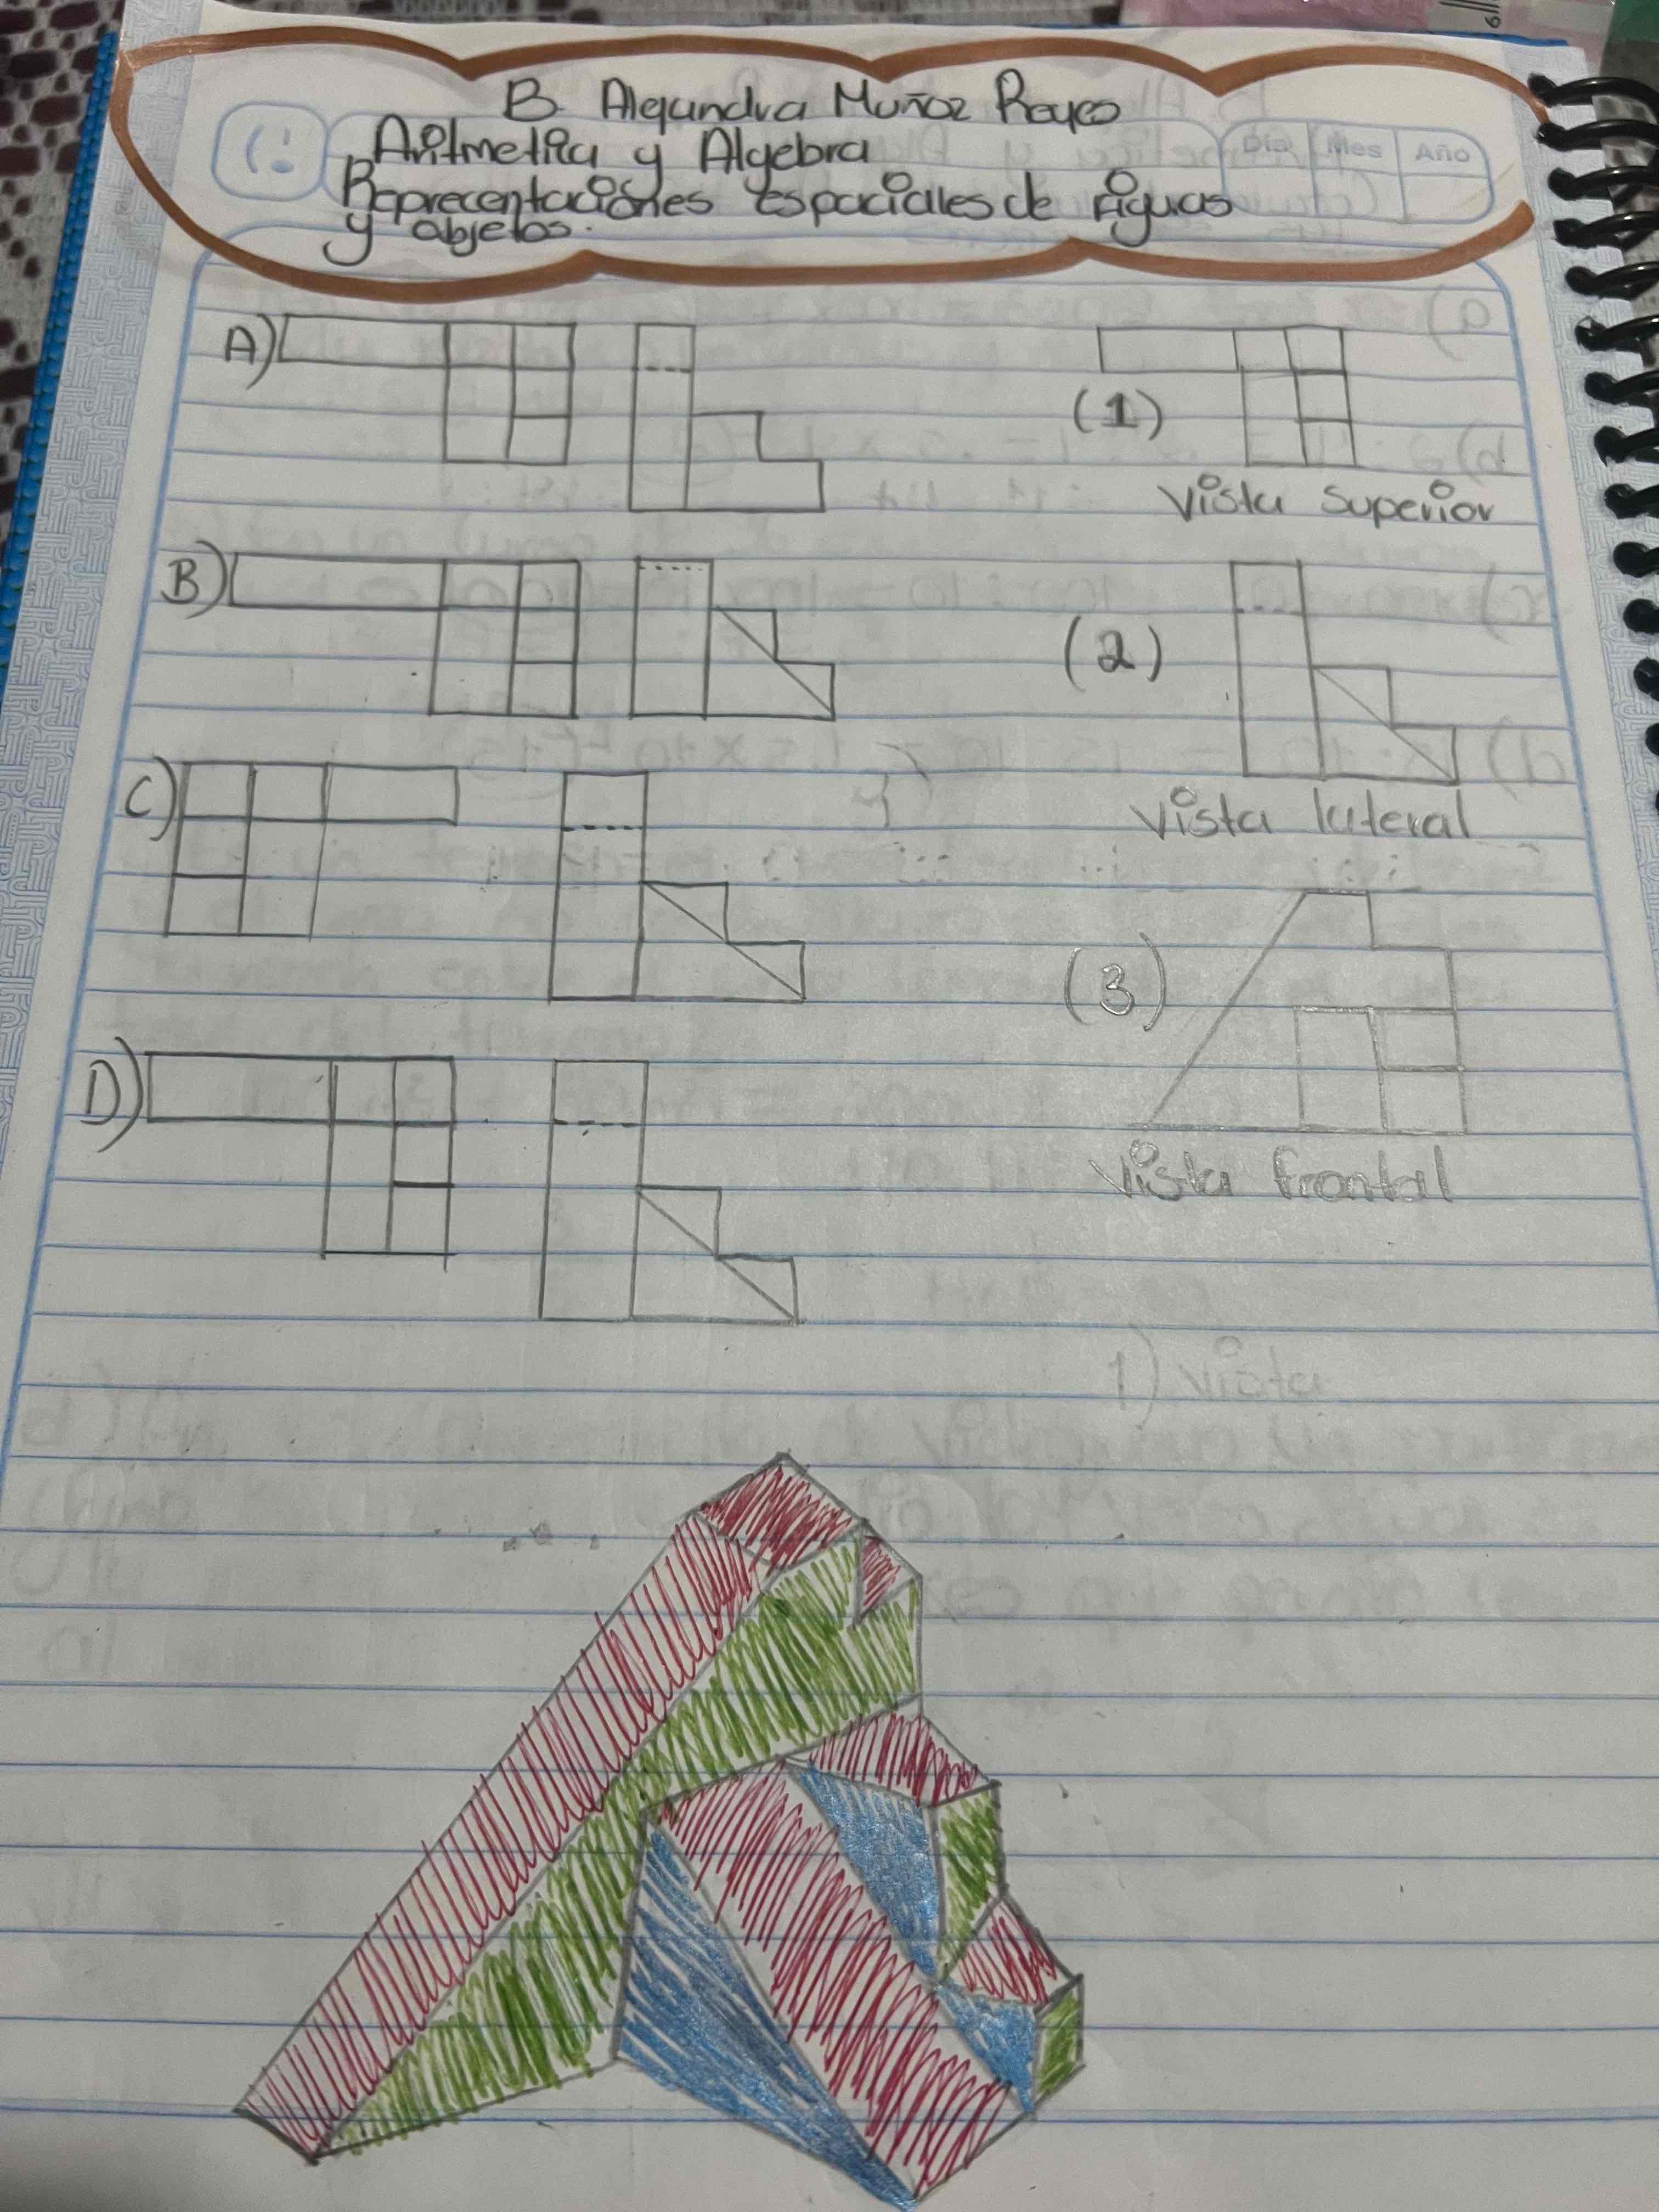 B. Alejandra Muñoz Reyes
Aritmetica y Algebra
Día Mes Año
Reprecentaciones espaciales de figuras
y objetos.
A)
(1)
Vista Superior
B)
(2)
Vista lateral
C)
(3)
Vista frontal
D)
1) vista